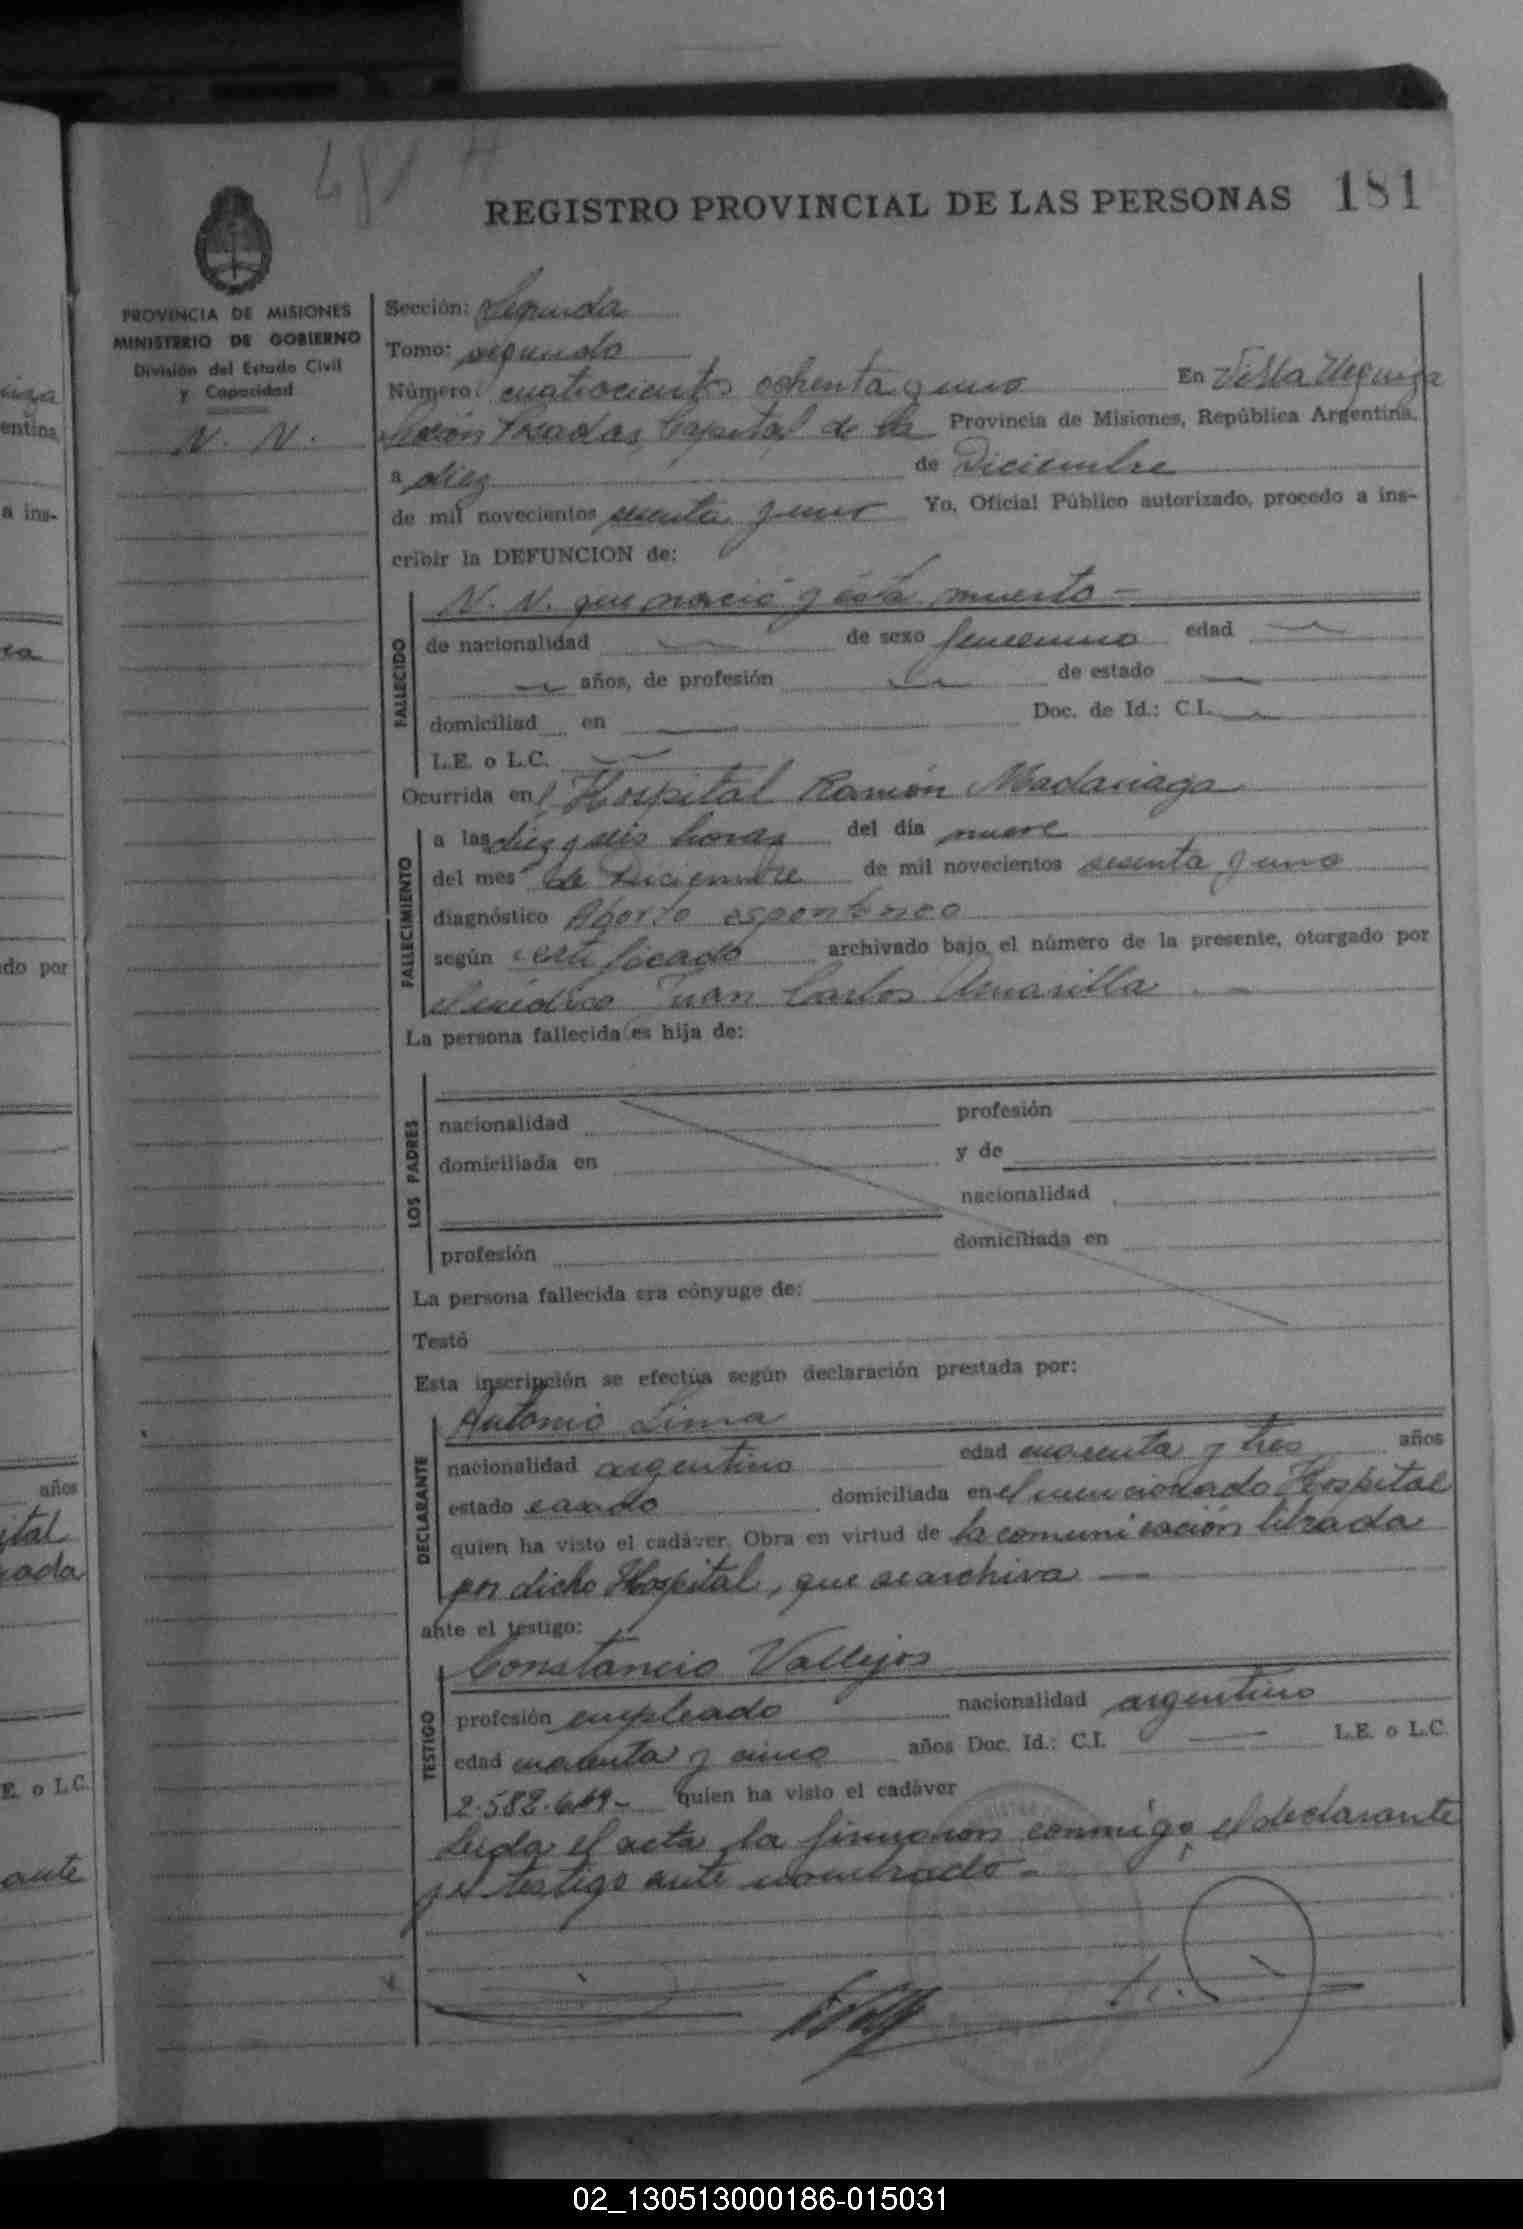 481
REGISTRO PROVINCIAL DE LAS PERSONAS 181
PROVINCIA DE MISIONES
MINISTERIO DE GOBIERNO
División del Estado Civil
y Capacidad
N. N.
Sección: Segunda
Tomo: segundo
Número: cuatrocientos ochenta y uno En Villa Urquiza
Posadas, Capital de la Provincia de Misiones, República Argentina,
a diez de Diciembre
de mil novecientos sesenta y uno Yo, Oficial Público autorizado, procedo a ins-
cribir la DEFUNCION de:
N. N. que nació y está muerto -
FALLECIDO
de nacionalidad de sexo femenino edad
años, de profesión de estado
domiciliad en Doc. de Id.: C.I.
L.E. o L.C.
Ocurrida en el Hospital Ramón Madariaga
FALLECIMIENTO
a las diez y seis horas del día nueve
del mes de Diciembre de mil novecientos sesenta y uno
diagnóstico Aborto espontáneo
según certificado archivado bajo el número de la presente, otorgado por
el médico Juan Carlos Amarilla . -
La persona fallecida es hija de:
LOS PADRES
nacionalidad profesión
domiciliada en y de
nacionalidad
profesión domiciliada en
La persona fallecida era cónyuge de:
Testó
Esta inscripción se efectúa según declaración prestada por:
DECLARANTE
Antonio Lima
nacionalidad argentino edad cuarenta y tres años
estado casado domiciliada en el mencionado Hospital
quien ha visto el cadáver. Obra en virtud de la comunicación librada
por dicho Hospital, que se archiva —
ante el testigo:
TESTIGO
Constancio Vallejos
profesión empleado nacionalidad argentino
edad cuarenta y cinco años Doc. Id.: C.I. — L.E. o L.C.
quien ha visto el cadáver
Leida el acta la firmaron conmigo, el declarante
y el testigo ante nombrado -
años
do por
a ins-
entina,
E. o L.C.
ante
02_130513000186-015031